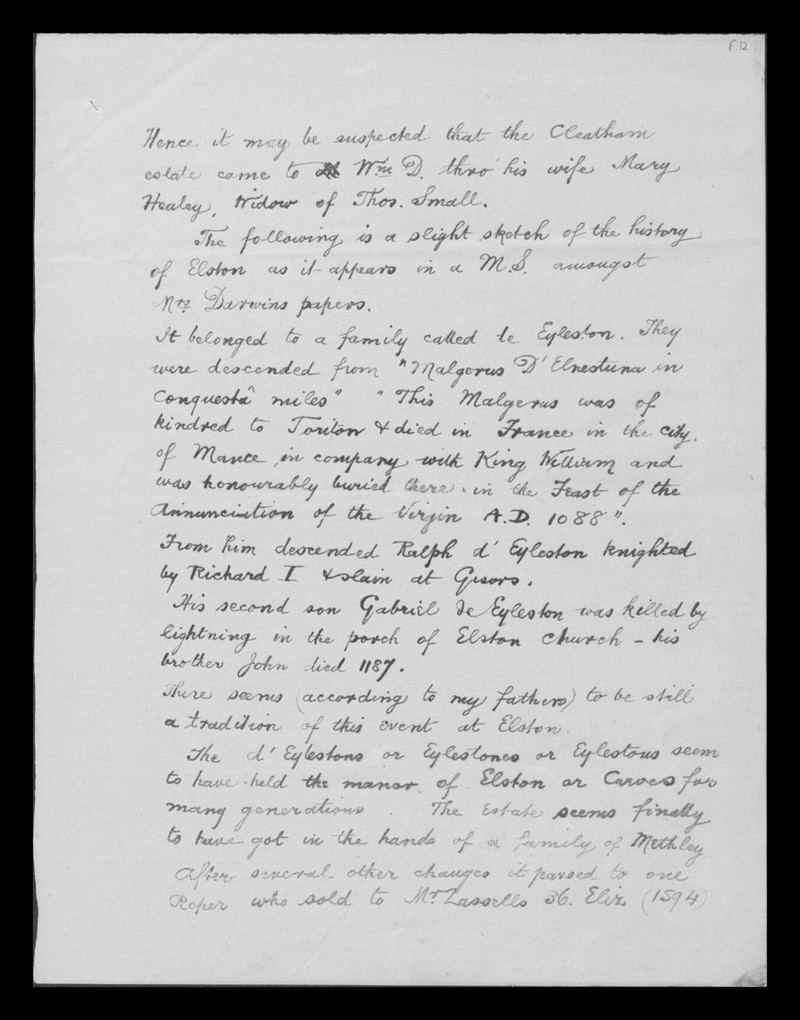 f.12
Hence it may be suspected that the Cleatham
estate came to Wm D. thro' his wife Mary
Healey, Widow of Thos. Small.
The following is a slight sketch of the history
of Elston as it appears in a M.S. amongst
Mrs Darwins papers.
It belonged to a family called de Eyleston. They
were descended from "Malgerus D'Elnestuna in
Conquestâ miles" "This Malgerus was of
kindred to Toriton & died in France in the city.
of Mance in company with King William and
was honourably buried there in the Feast of the
Annunciation of the Virgin A.D. 1088".
From him descended Ralph d'Eyleston knighted
by Richard I & slain at Gisors.
His second son Gabriel de Eyleston was killed by
lightning in the porch of Elston church – his
brother John died 1187.
There seems (according to my fathers) to be still
a tradition of this event at Elston.
The d'Eylestons or Eylestones or Eylestous seem
to have held the manor of Elston or Carves for
many generations. The Estate seems finally
to have got in the hands of a family of Methley
After several other changes it passed to one
Roper who sold to Mr Lassells 36. Eliz (1594)